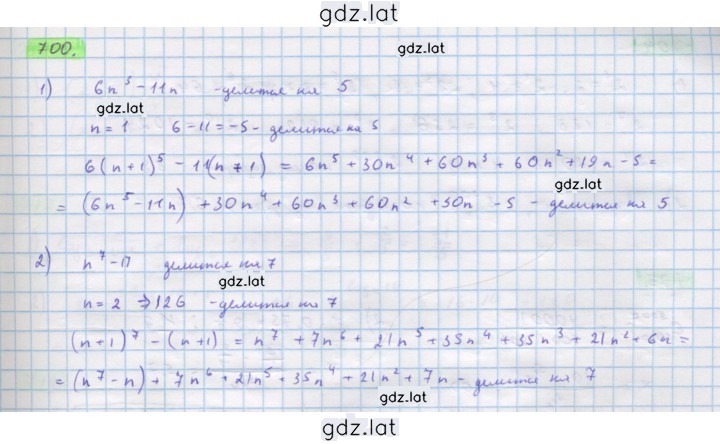 gdz.lat
700.
gdz.lat
1) 6n⁵ - 11n - делится на 5
gdz.lat
n = 1 6 - 11 = -5 - делится на 5
6(n+1)⁵ - 11(n+1) = 6n⁵ + 30n⁴ + 60n³ + 60n² + 19n - 5 =
gdz.lat
= (6n⁵ - 11n) + 30n⁴ + 60n³ + 60n² + 30n - 5 - делится на 5
2) n⁷ - n делится на 7
gdz.lat
n = 2 ⇒ 126 - делится на 7
(n+1)⁷ - (n+1) = n⁷ + 7n⁶ + 21n⁵ + 35n⁴ + 35n³ + 21n² + 6n =
= (n⁷ - n) + 7n⁶ + 21n⁵ + 35n⁴ + 21n² + 7n - делится на 7
gdz.lat
gdz.lat